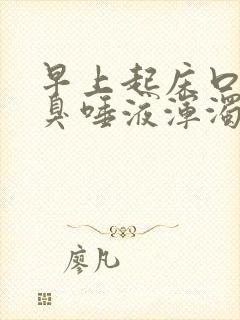 早上起床口
臭唾液浑浊
廖凡